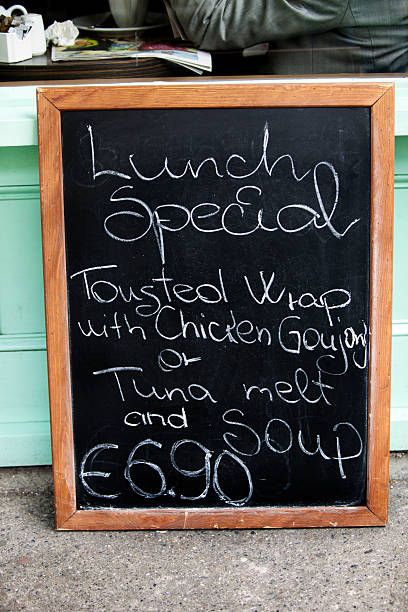 Lunch
Special
Tousted Wrap
with Chicken Goujons
or
Tuna melt
and Soup
€6.90